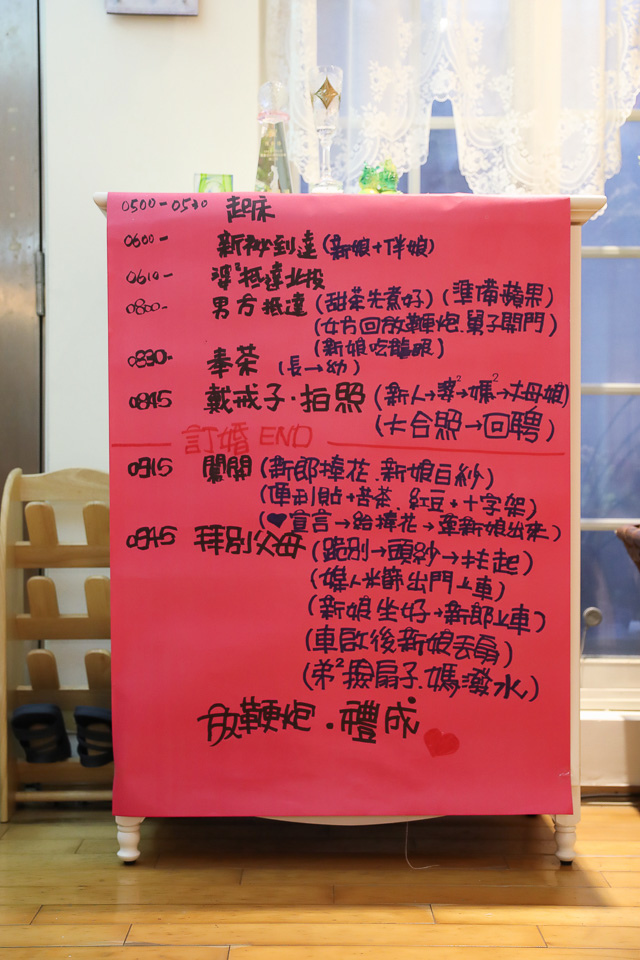 0500-0530 起床
0600- 新秘到達(新娘+伴娘)
0610- 婆²抵達北投
0800- 男方抵達(甜茶先煮好)(準備蘋果)
(女方回放鞭炮.舅子開門)
(新娘吃龍眼)
0830- 奉茶 (長→幼)
0845 戴戒子·拍照(新人→婆²→媽²→丈母娘)
(大合照→回聘)
訂婚 END
0915 闖關(新郎捧花.新娘白紗)
(連刮貼+苦茶 紅豆+十字架)
(♥宣言→給捧花→牽新娘出來)
0945 拜別父母(跪別→頭紗→扶起)
(媒人米篩出門上車)
(新娘坐好→新郎上車)
(車啟後新娘丟扇)
(弟²撿扇子.媽潑水)
放鞭炮.禮成